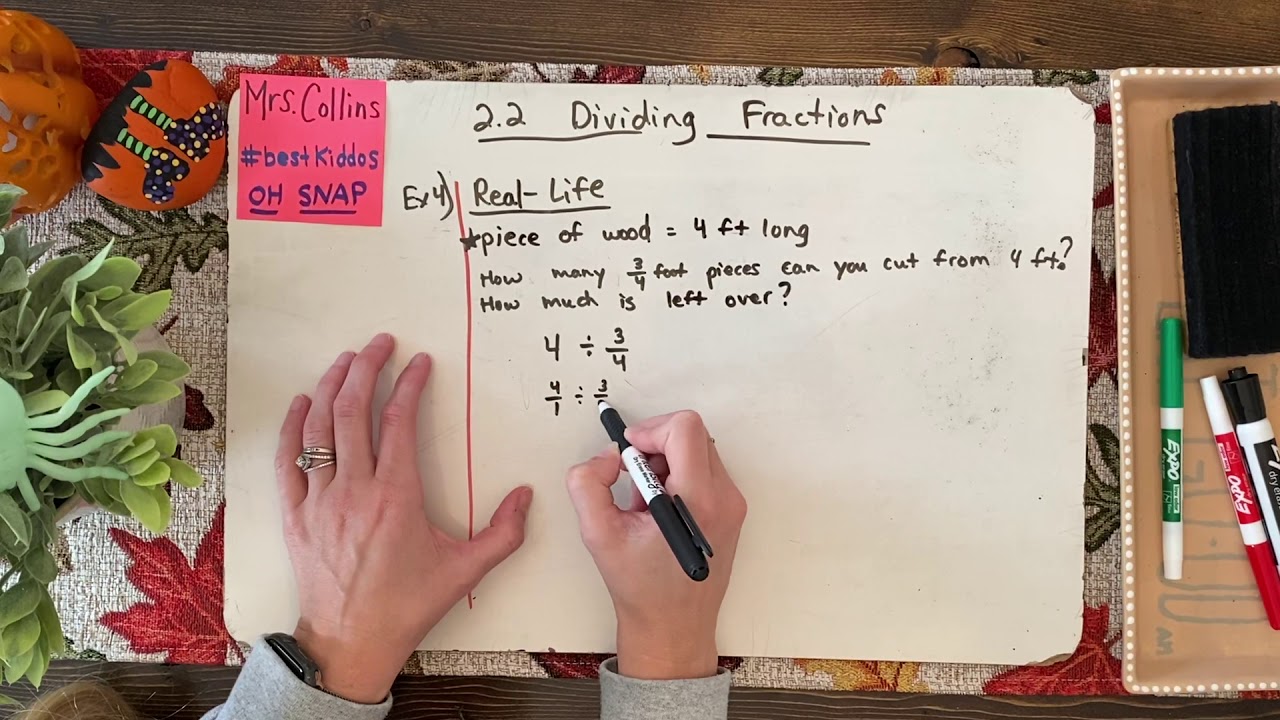 Mrs. Collins
#bestKiddos
OH SNAP
2.2 Dividing Fractions
Ex 4) Real-Life
★piece of wood = 4 ft long
How many 3/4 foot pieces can you cut from 4 ft.?
How much is left over?
4 ÷ 3/4
4/1 ÷ 3
EXPO
EXPO